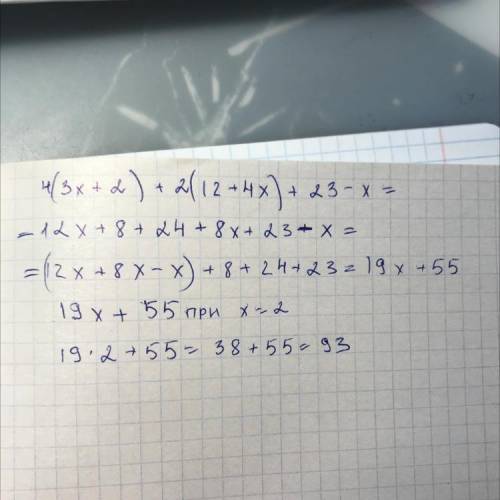 4(3x+2) + 2(12+4x) + 23-x =
=12x+8+24+8x+23-x=
=(12x+8x-x)+8+24+23=19x+55
19x+55 при x=2
19·2+55=38+55=93